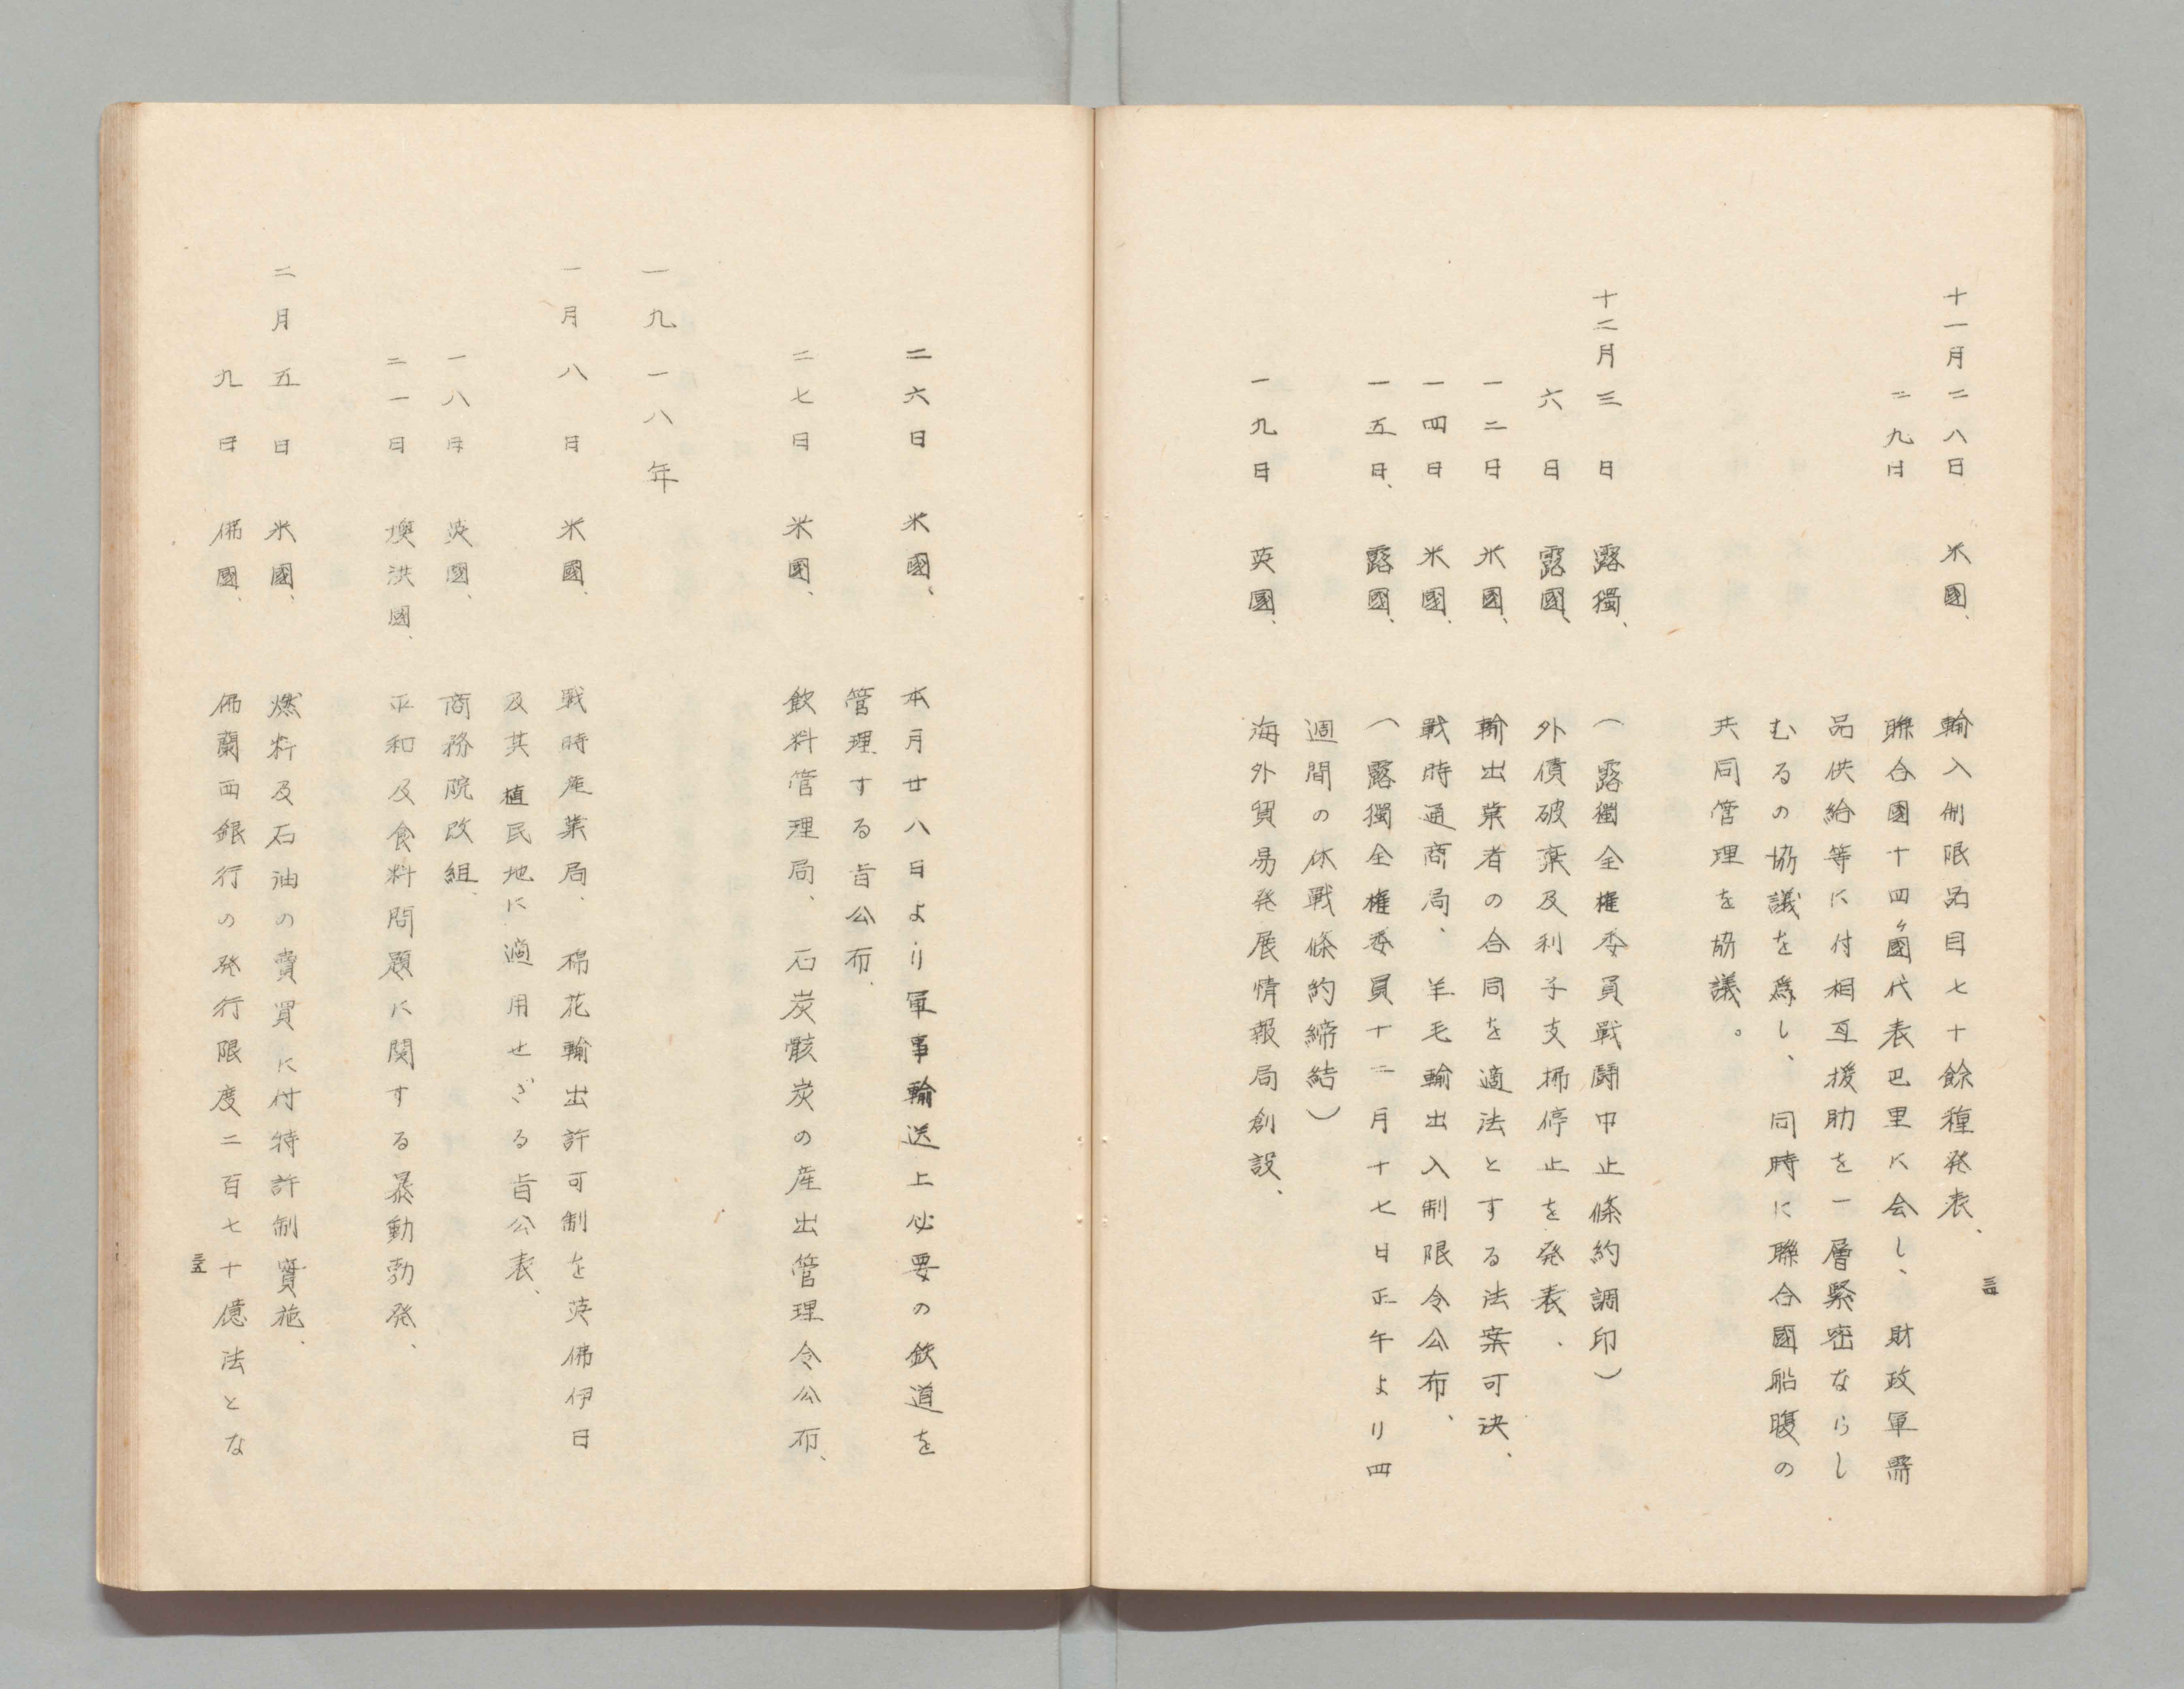 十一月二八日 米國、 輸入制限品目七十餘種発表、
二九日 聯合國十四ヶ國代表巴里に会し、財政軍需
品供給等に付相互援助を一層緊密ならし
むるの協議を爲し、同時に聯合國船腹の
共同管理を協議。
十二月三日 露獨、 （露獨全権委員戰鬪中止條約調印）
六日 露國、 外債破棄及利子支拂停止を発表、
一二日 米國、 輸出業者の合同を適法とする法案可決、
一四日 米國、 戰時通商局、羊毛輸出入制限令公布、
一五日、 露國、 （露獨全権委員十二月十七日正午より四
週間の休戰條約締結）
一九日 英國、 海外貿易発展情報局創設、
三四
二六日 米國、 本月廿八日より軍事輸送上必要の鉄道を
管理する旨公布、
二七日 米國、 飲料管理局、石炭骸炭の産出管理令公布、
一九一八年
一月八日 米國、 戰時産業局、棉花輸出許可制を英佛伊日
及其植民地に適用せざる旨公表、
一八日 英國、 商務院改組、
二一日 墺洪國、 平和及食料問題に関する暴動勃発、
二月五日 米國、 燃料及石油の賣買に付特許制實施、
九日 佛國、 佛蘭西銀行の発行限度二百七十億法とな
三五